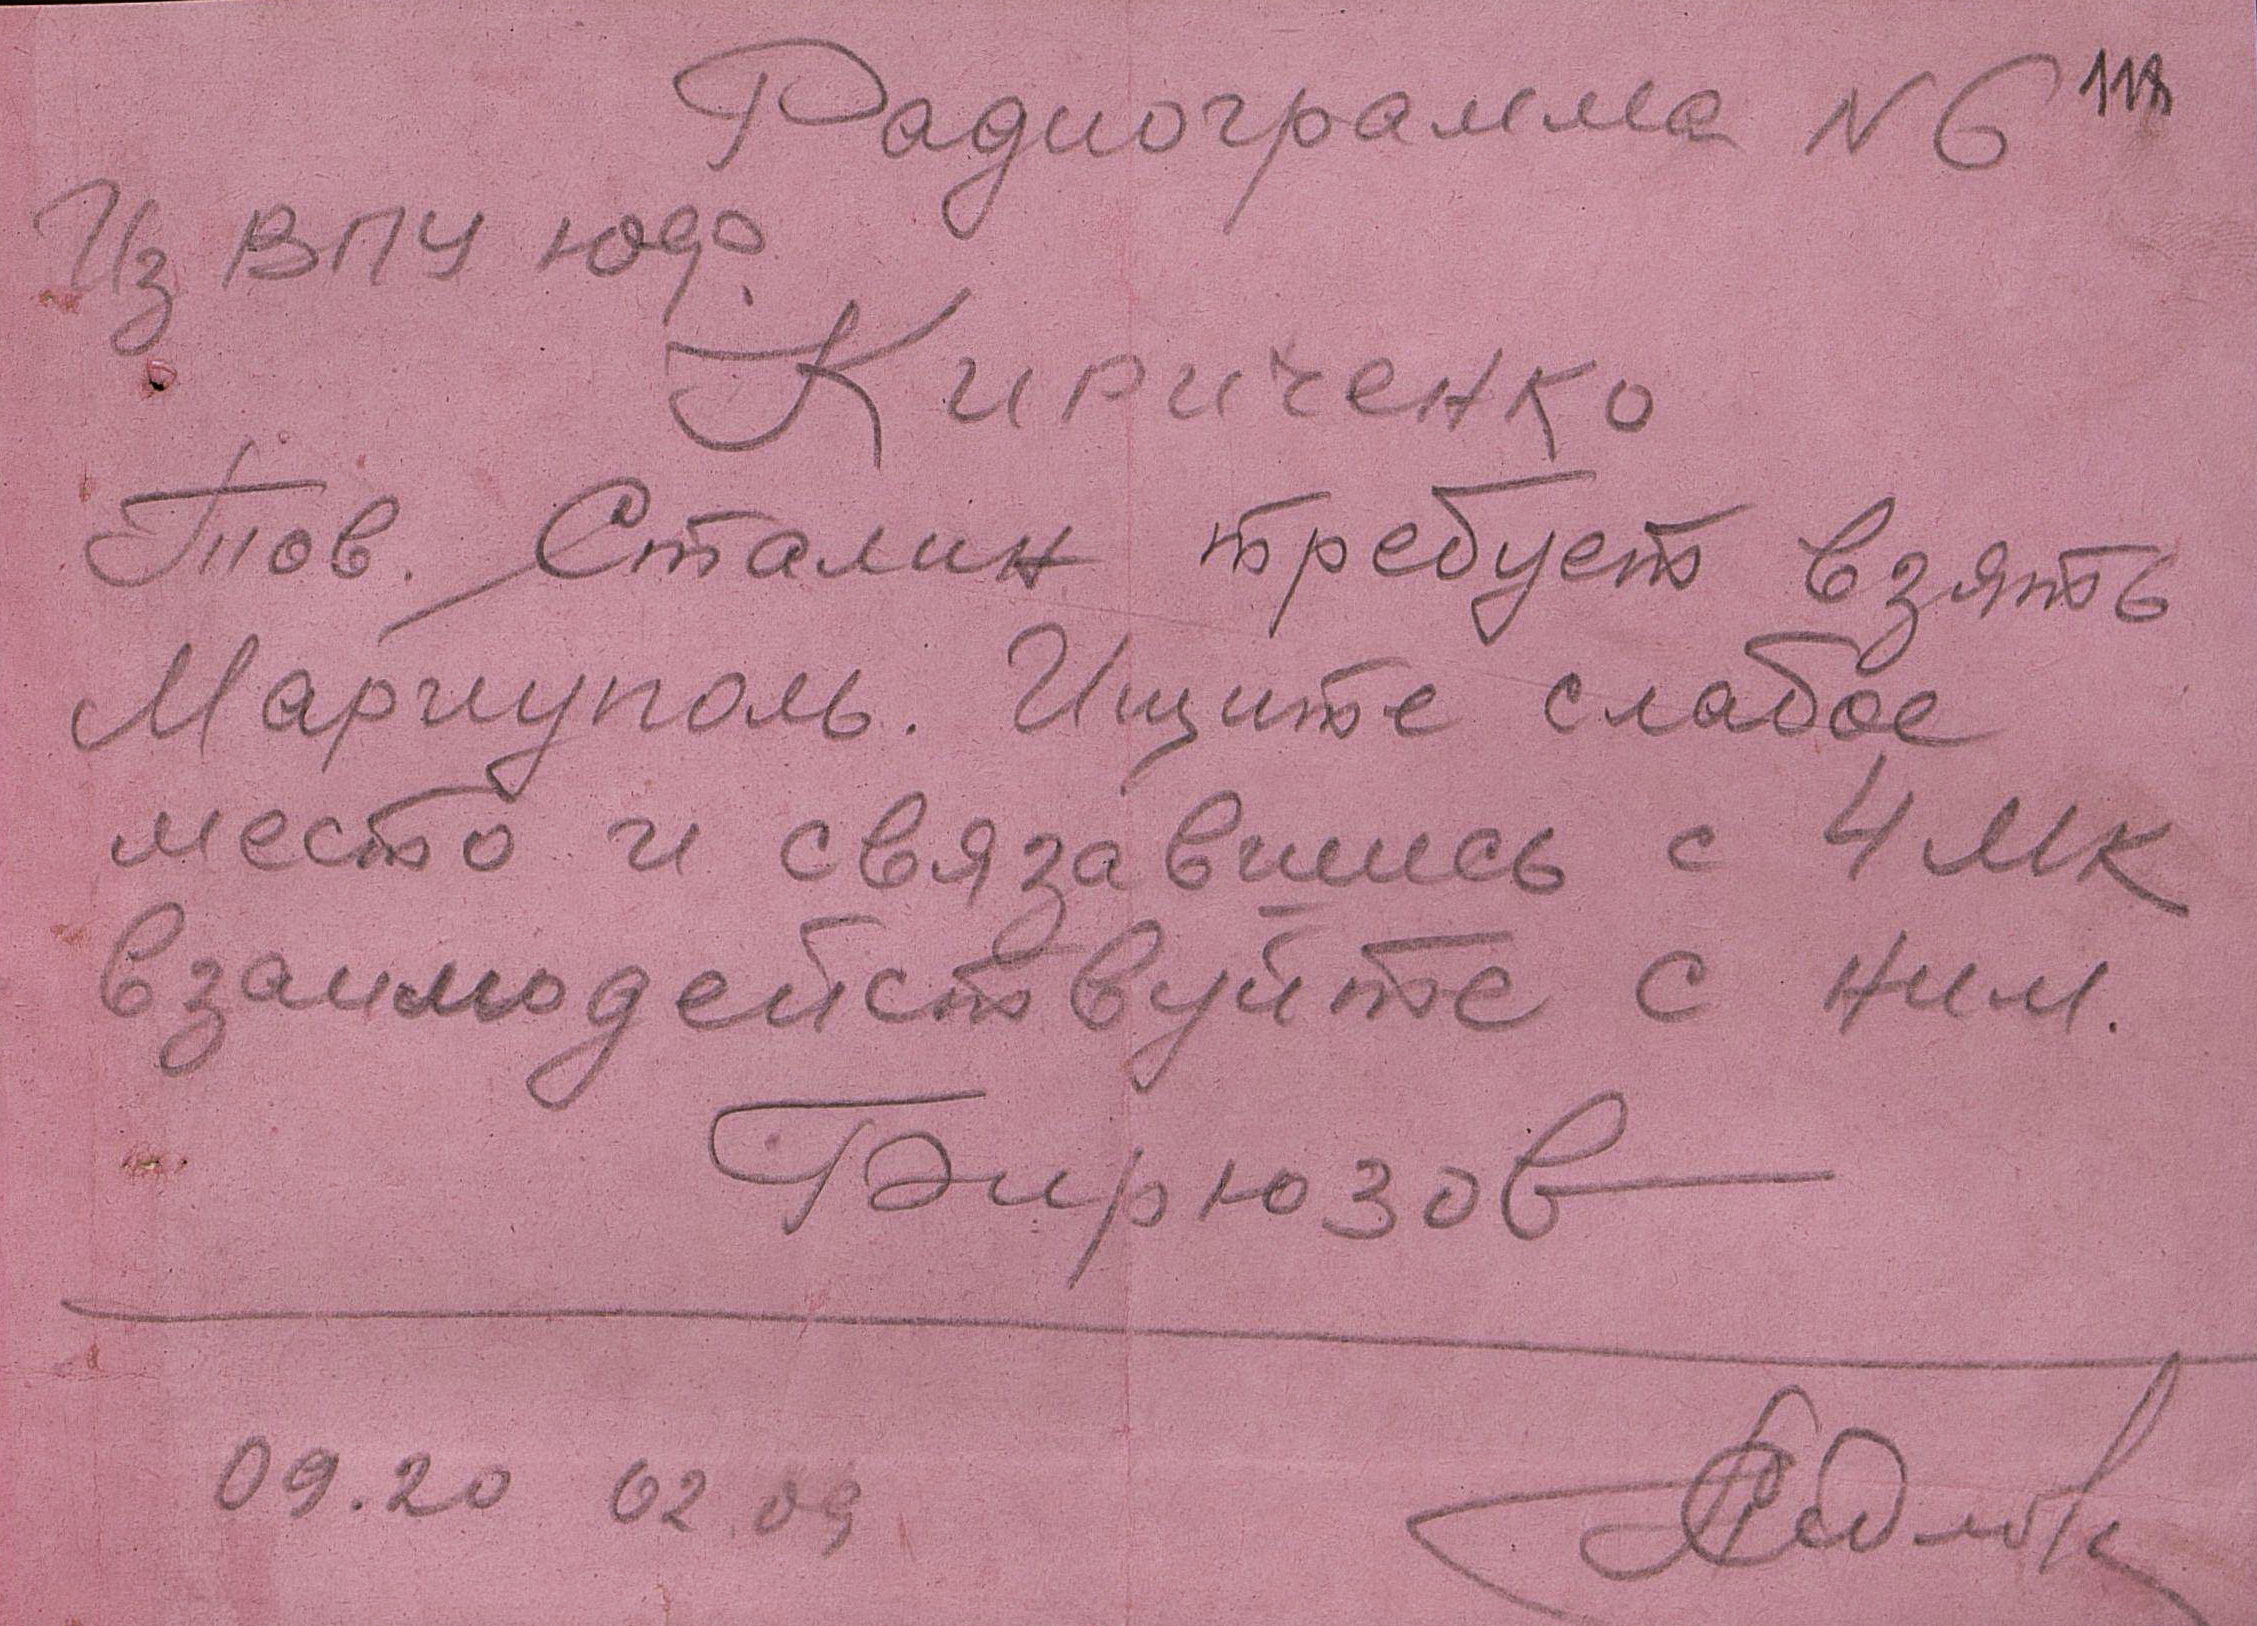 Радиограмма N 6 118
Из ВПУ ЮФ.
Кириченко
Тов. Сталин требует взять
Мариуполь. Ищите слабое
место и связавшись с 4 МК
взаимодействуйте с ним.
Бирюзов
09.20 02.09